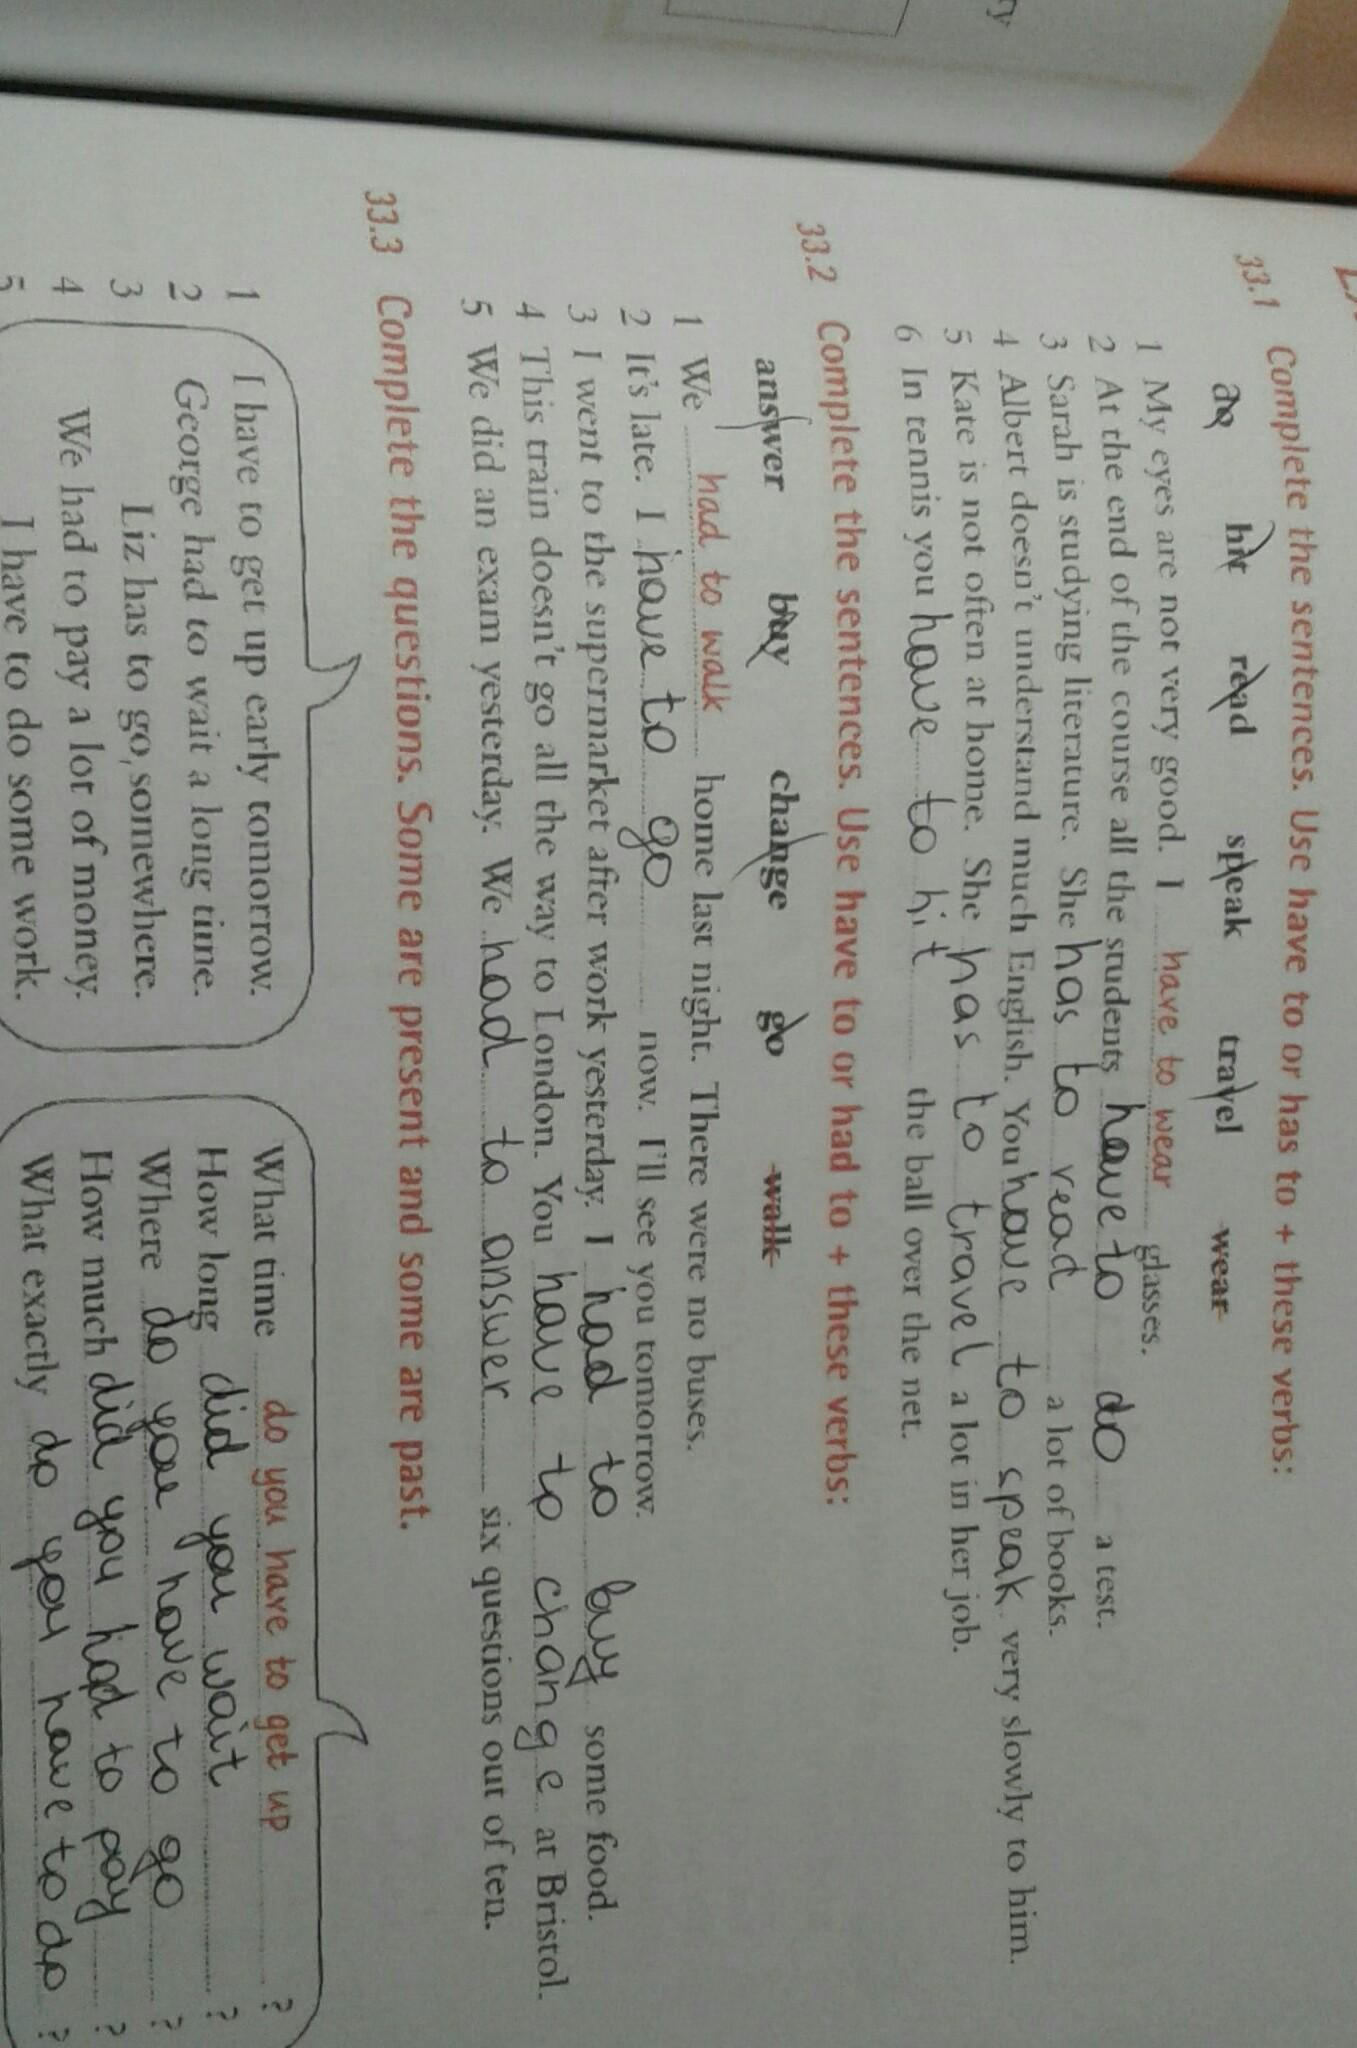 33.1 Complete the sentences. Use have to or has to + these verbs:
do hit read speak travel wear
1 My eyes are not very good. I have to wear glasses.
2 At the end of the course all the students have to do a test.
3 Sarah is studying literature. She has to read a lot of books.
4 Albert doesn't understand much English. You have to speak very slowly to him.
5 Kate is not often at home. She has to travel a lot in her job.
6 In tennis you have to hit the ball over the net.
33.2 Complete the sentences. Use have to or had to + these verbs:
answer buy change go walk
1 We had to walk home last night. There were no buses.
2 It's late. I have to go now. I'll see you tomorrow.
3 I went to the supermarket after work yesterday. I had to buy some food.
4 This train doesn't go all the way to London. You have to change at Bristol.
5 We did an exam yesterday. We had to answer six questions out of ten.
33.3 Complete the questions. Some are present and some are past.
1 I have to get up early tomorrow. What time do you have to get up ?
2 George had to wait a long time. How long did you wait ?
3 Liz has to go somewhere. Where do you have to go ?
4 We had to pay a lot of money. How much did you had to pay ?
5 I have to do some work. What exactly do you have to do ?